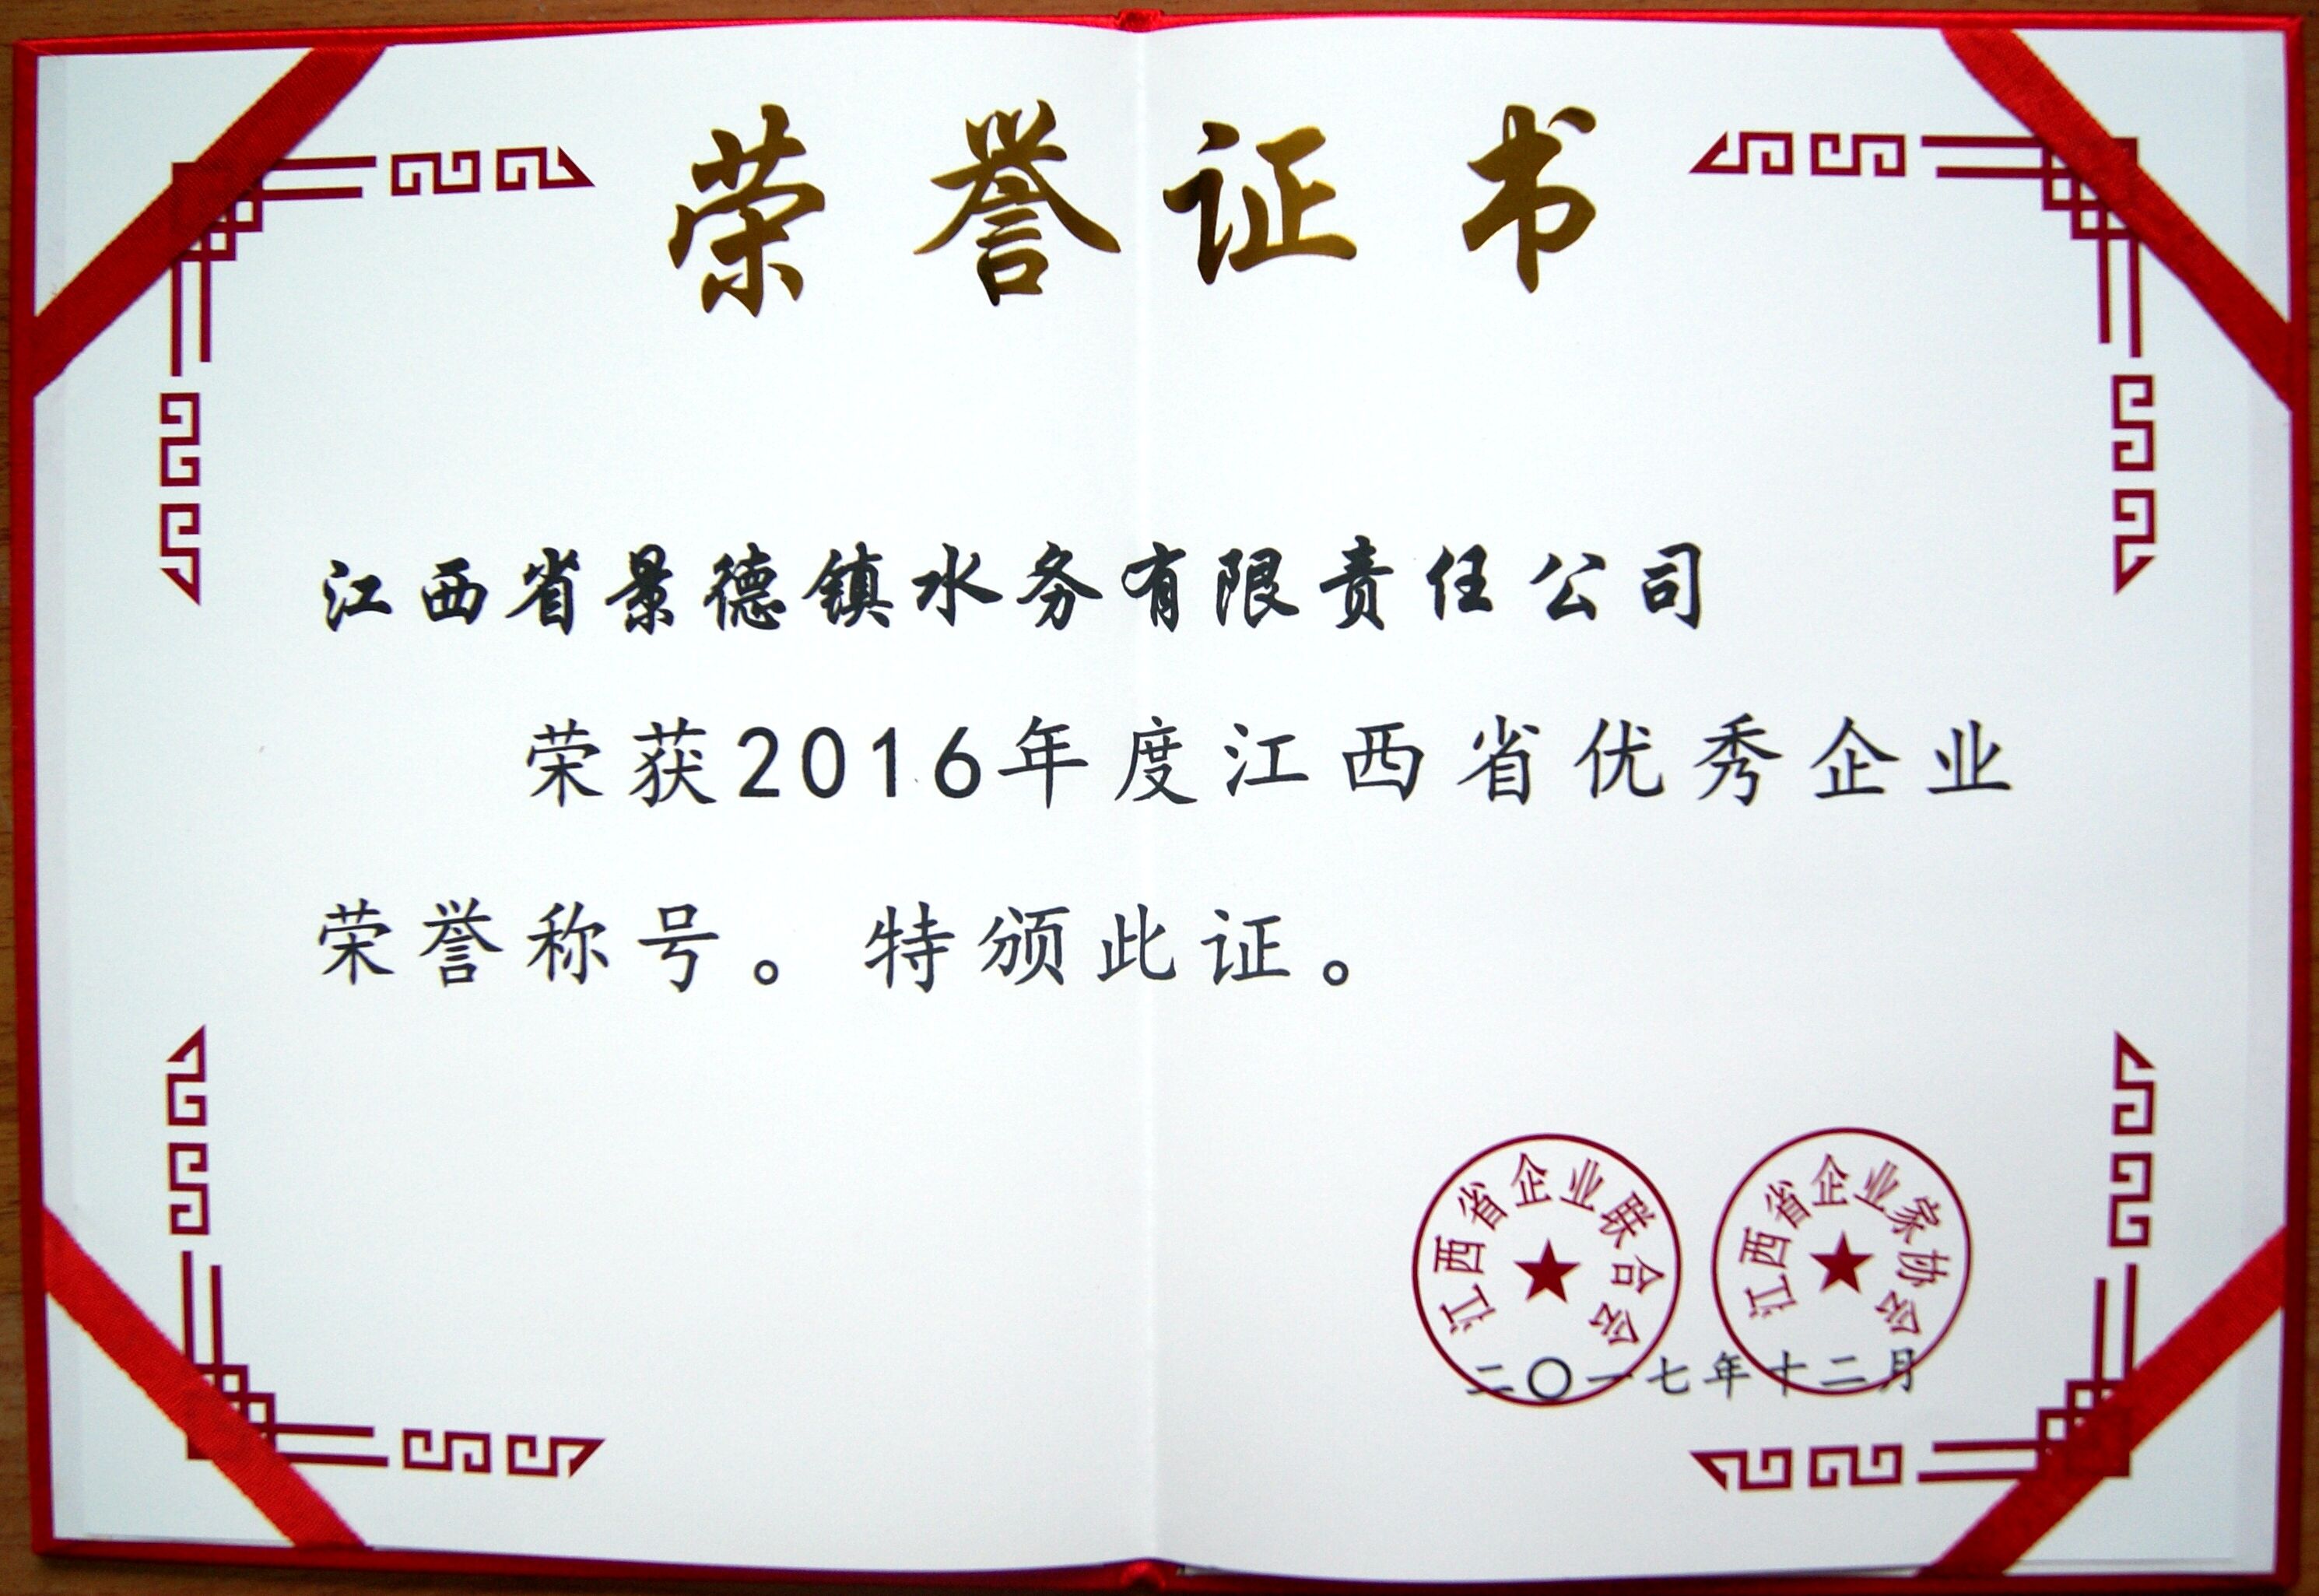 荣誉证书
江西省景德镇水务有限责任公司
荣获2016年度江西省优秀企业
荣誉称号。特颁此证。
江西省企业联合会
江西省企业家协会
二〇一七年十二月